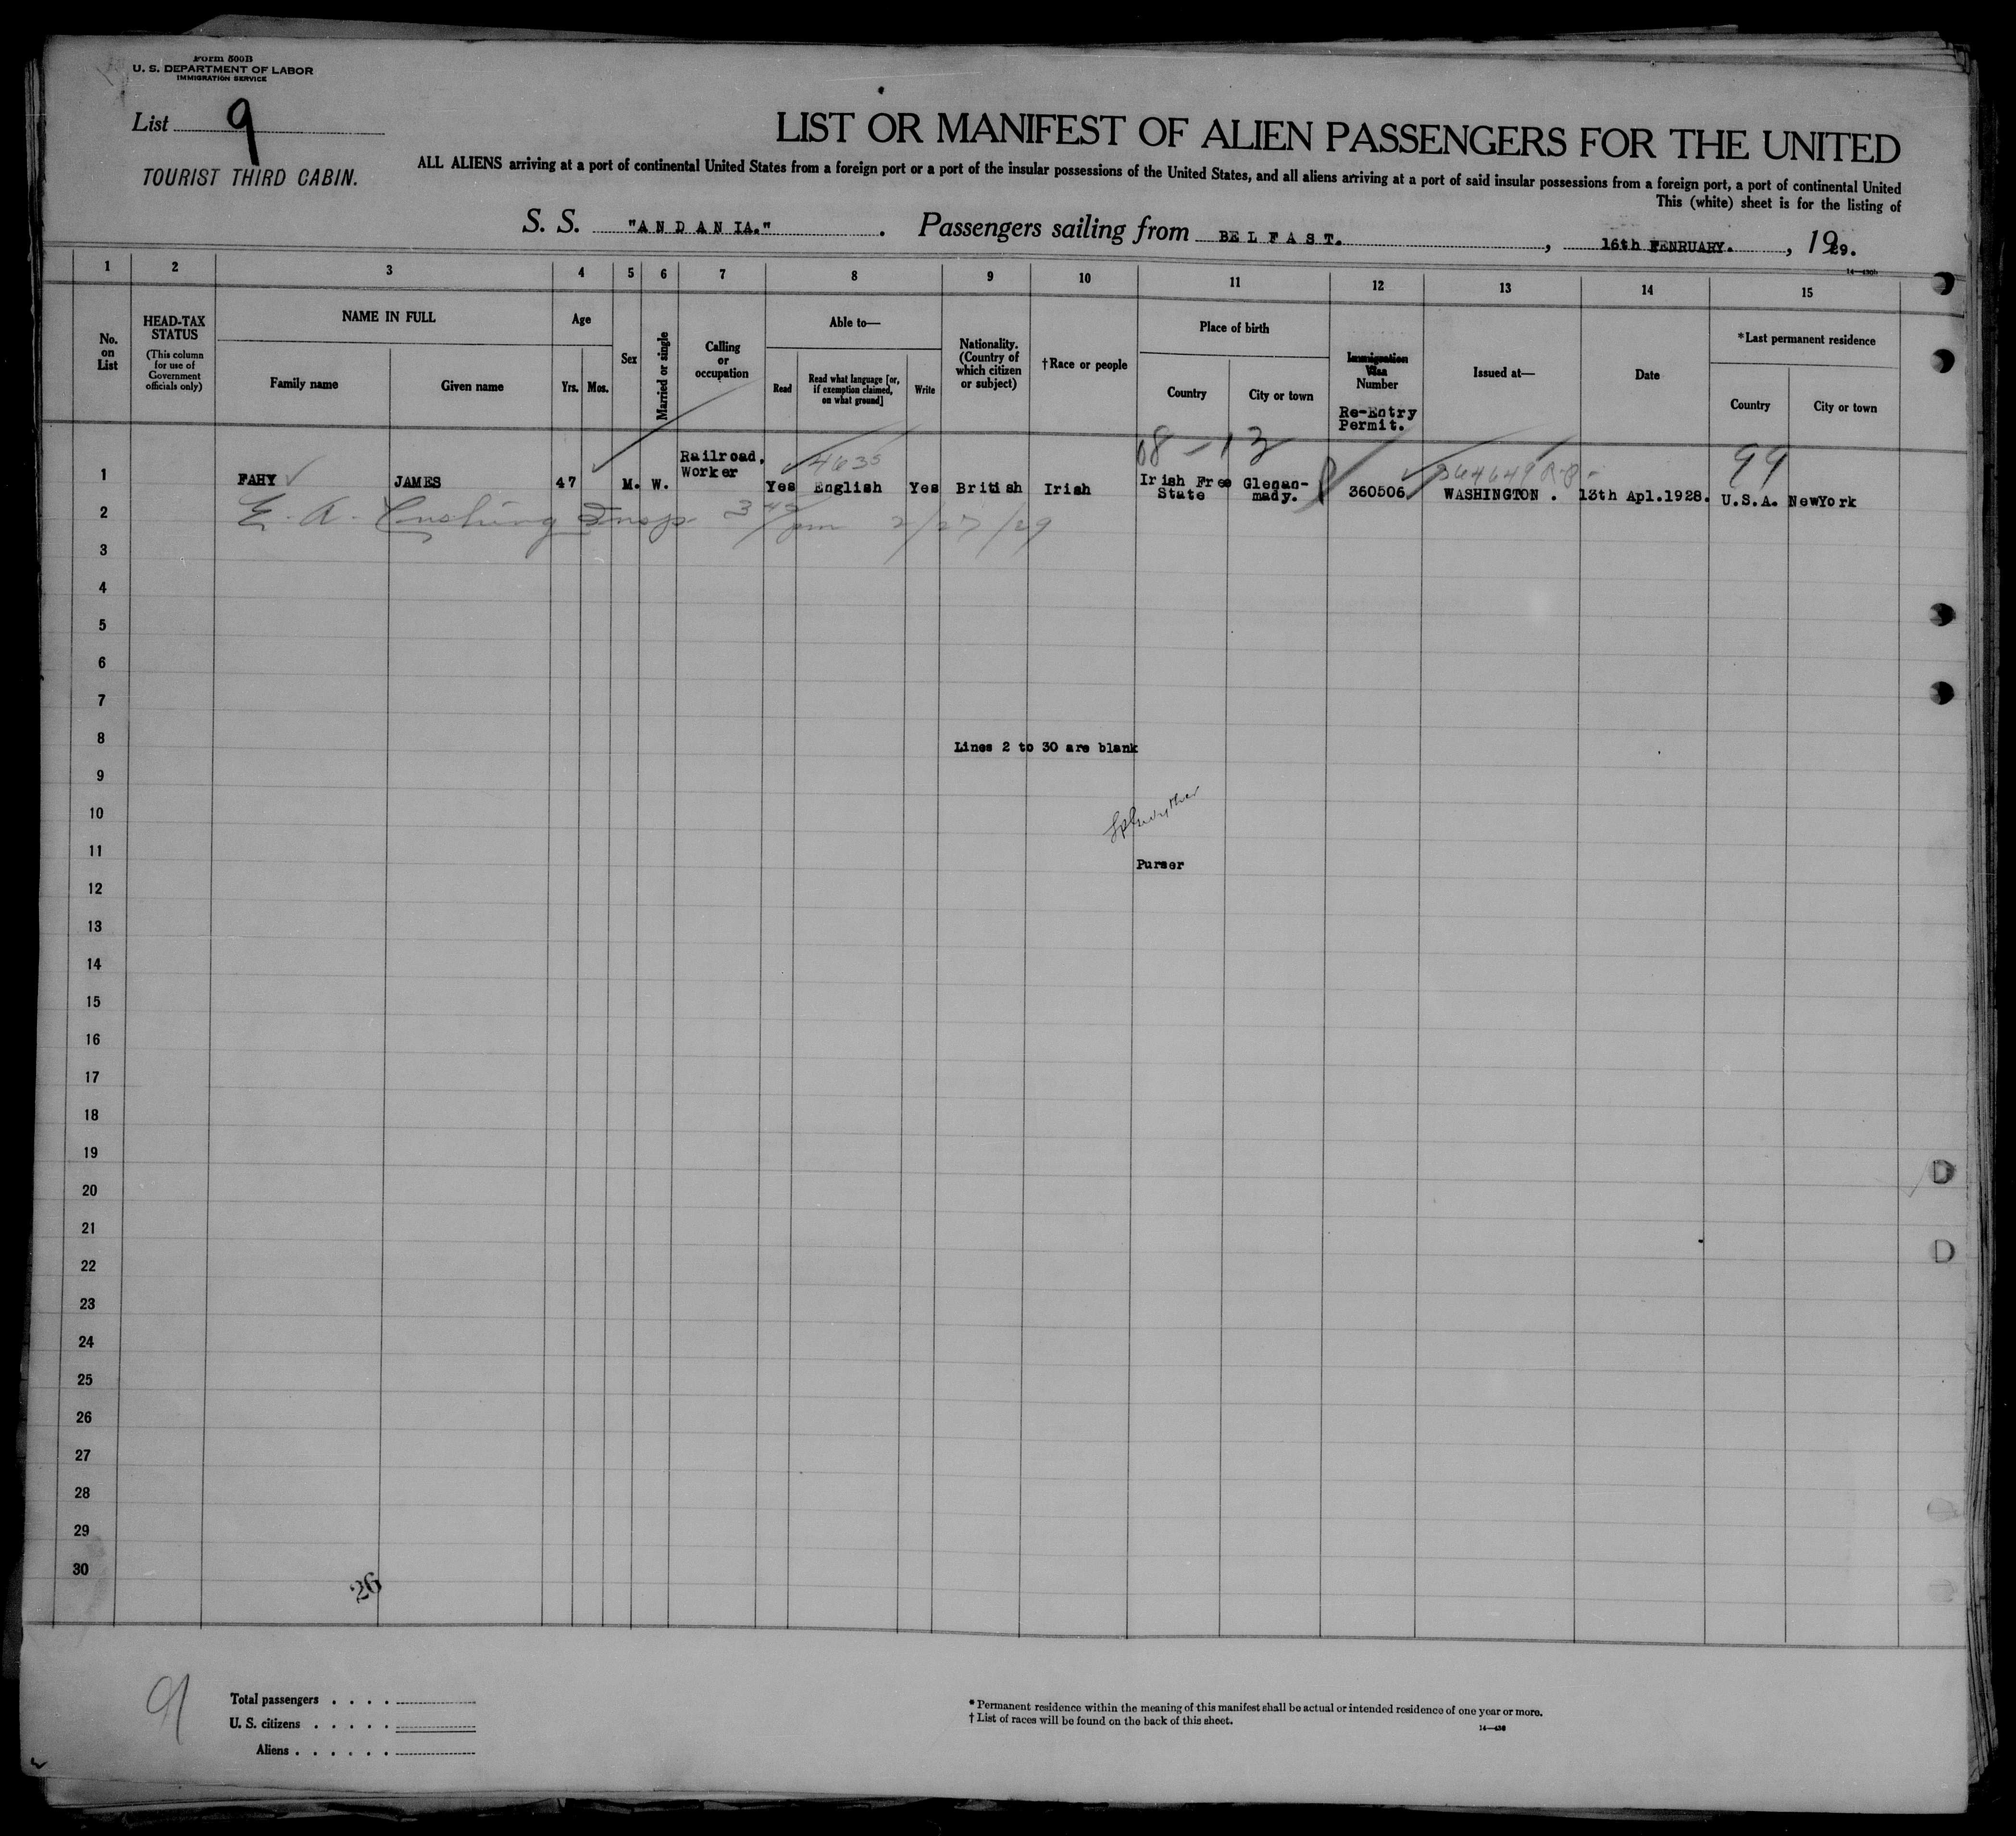 Form 500B
U. S. DEPARTMENT OF LABOR
IMMIGRATION SERVICE
List 9
TOURIST THIRD CABIN.
LIST OR MANIFEST OF ALIEN PASSENGERS FOR THE UNITED
ALL ALIENS arriving at a port of continental United States from a foreign port or a port of the insular possessions of the United States, and all aliens arriving at a port of said insular possessions from a foreign port, a port of continental United
This (white) sheet is for the listing of
S. S. "ANDANIA." . Passengers sailing from BELFAST. , 16th FENRUARY. , 1929.
14—430b
1 2 3 4 5 6 7 8 9 10 11 12 13 14 15
No. on List
HEAD-TAX STATUS
(This column for use of Government officials only)
NAME IN FULL
Family name
Given name
Age
Yrs.
Mos.
Sex
Married or single
Calling or occupation
Able to—
Read
Read what language [or, if exemption claimed, on what ground]
Write
Nationality. (Country of which citizen or subject)
†Race or people
Place of birth
Country
City or town
Immigration Visa Number
Re-Entry Permit.
Issued at—
Date
*Last permanent residence
Country
City or town
08 - 13
99
4635
364649
1 FAHY JAMES 47 M. W. Railroad, Worker Yes English Yes British Irish Irish Free State Glenan-mady. 360506 WASHINGTON . 13th Apl.1928. U.S.A. NewYork
2 E. A. Cushing Insp. 3 42/pm 2/27/29
3
4
5
6
7
8 Lines 2 to 30 are blank
9
10
11
Purser
12
13
14
15
16
17
18
19
20
21
22
23
24
25
26
27
28
29
30
26
9
Total passengers . . . .
U. S. citizens . . . . .
Aliens . . . . . .
* Permanent residence within the meaning of this manifest shall be actual or intended residence of one year or more.
† List of races will be found on the back of this sheet.
14—430